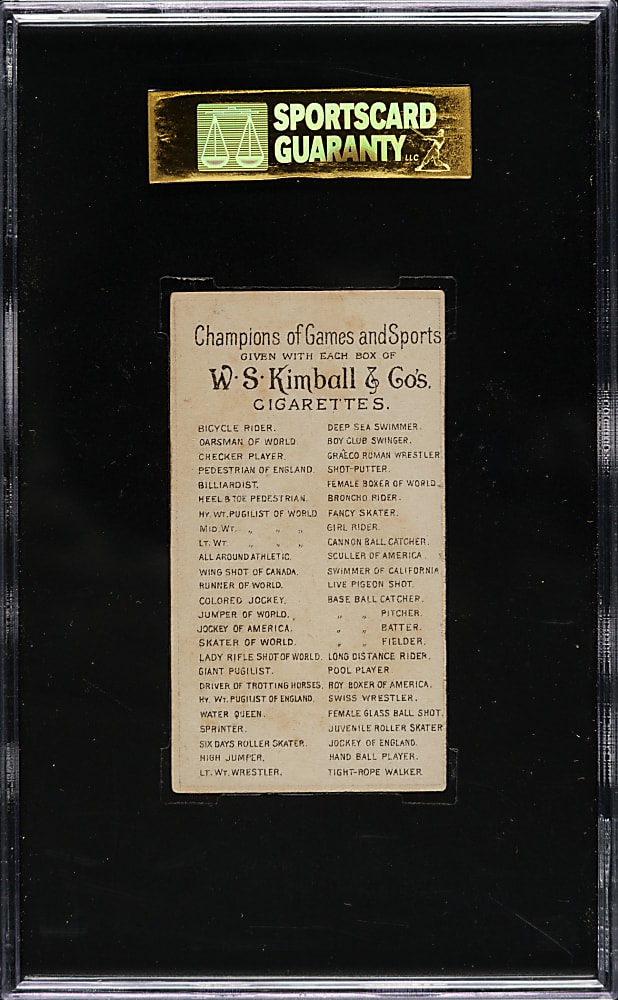 SPORTSCARD
GUARANTY LLC
Champions of Games and Sports
GIVEN WITH EACH BOX OF
W. S. Kimball & Co's.
CIGARETTES.
BICYCLE RIDER.
OARSMAN OF WORLD
CHECKER PLAYER.
PEDESTRIAN OF ENGLAND.
BILLIARDIST.
HEEL & TOE PEDESTRIAN.
HY. WT. PUGILIST OF WORLD
MID. WT. „ „ „
LT. WT. „ „ „
ALL AROUND ATHLETIC.
WING SHOT OF CANADA.
RUNNER OF WORLD.
COLORED JOCKEY.
JUMPER OF WORLD.
JOCKEY OF AMERICA.
SKATER OF WORLD.
LADY RIFLE SHOT OF WORLD.
GIANT PUGILIST.
DRIVER OF TROTTING HORSES.
HY. WT. PUGILIST OF ENGLAND.
WATER QUEEN.
SPRINTER.
SIX DAYS ROLLER SKATER.
HIGH JUMPER.
LT. WT. WRESTLER.
DEEP SEA SWIMMER.
BOY CLUB SWINGER.
GRAECO ROMAN WRESTLER
SHOT-PUTTER.
FEMALE BOXER OF WORLD.
BRONCHO RIDER.
FANCY SKATER.
GIRL RIDER.
CANNON BALL CATCHER.
SCULLER OF AMERICA.
SWIMMER OF CALIFORNIA
LIVE PIGEON SHOT.
BASE BALL CATCHER.
„ „ PITCHER.
„ „ BATTER.
„ „ FIELDER.
LONG DISTANCE RIDER.
POOL PLAYER
BOY BOXER OF AMERICA.
SWISS WRESTLER.
FEMALE GLASS BALL SHOT.
JUVENILE ROLLER SKATER
JOCKEY OF ENGLAND.
HAND BALL PLAYER.
TIGHT-ROPE WALKER